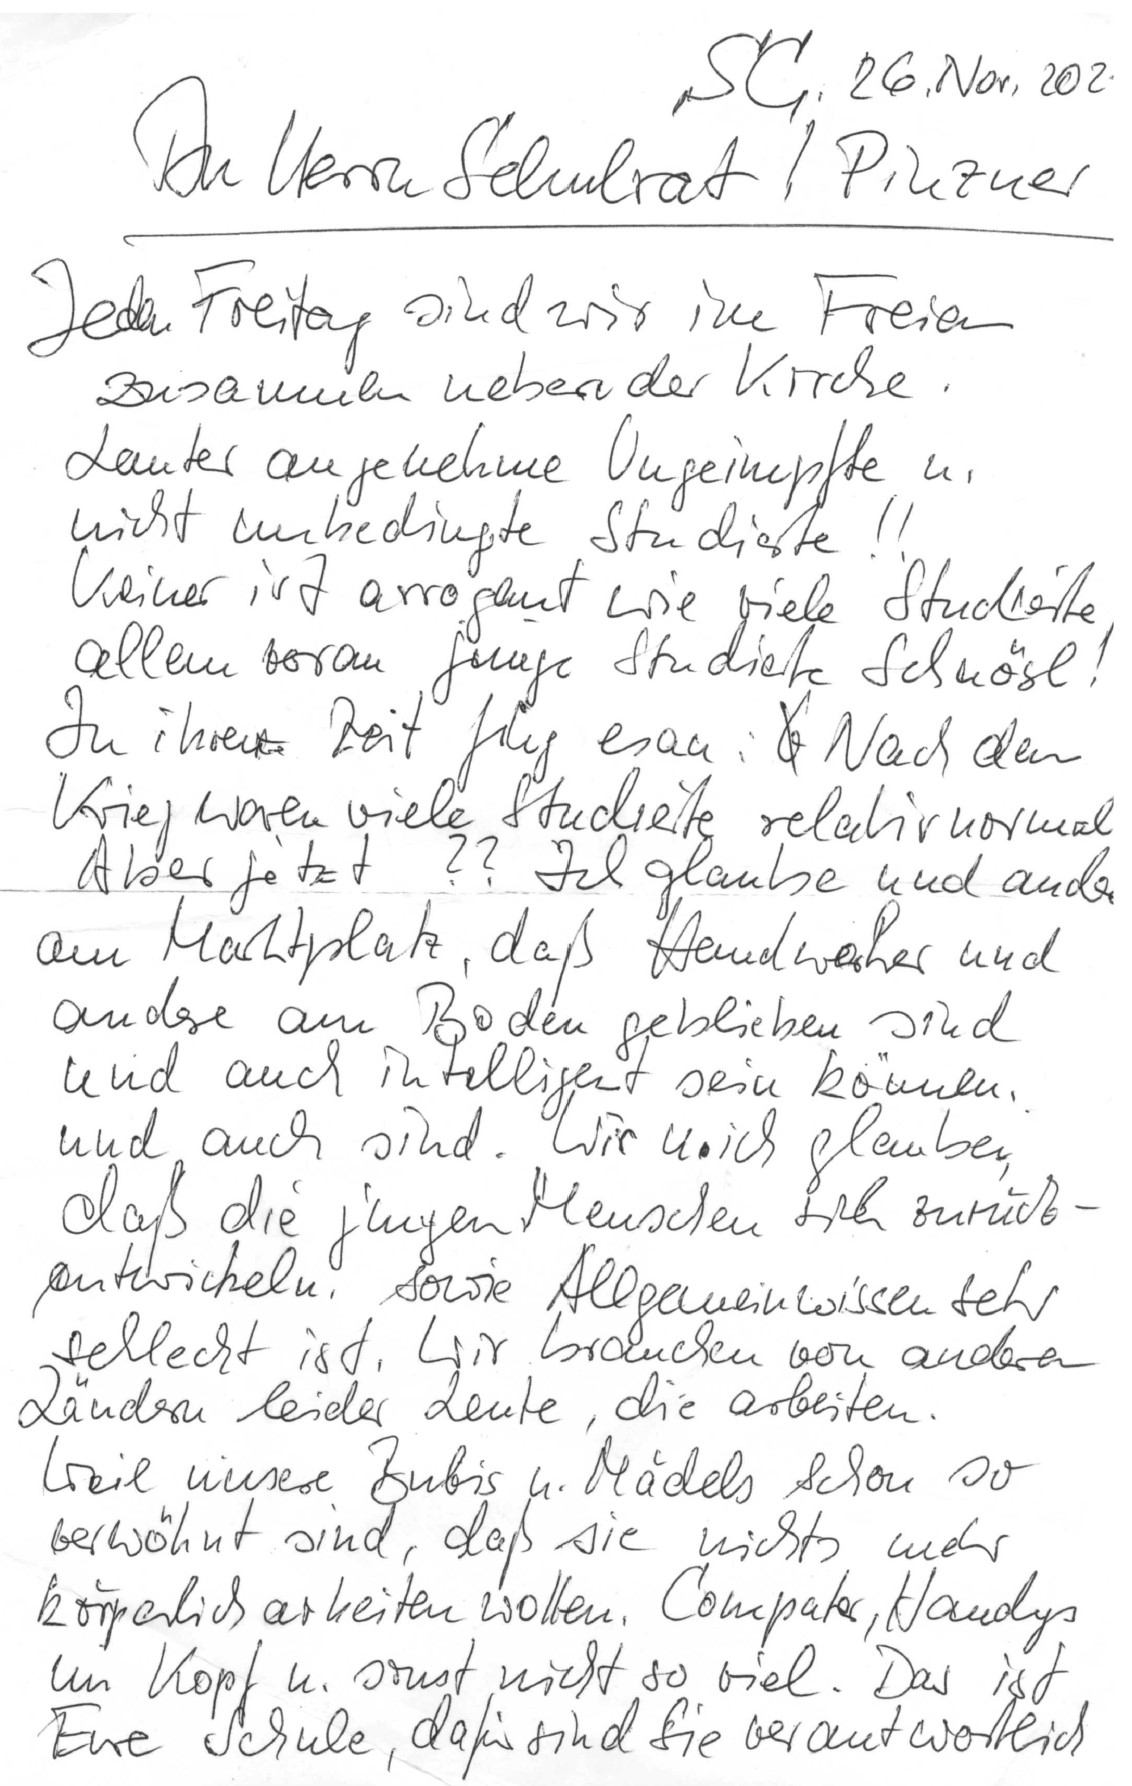 SG, 26. Nov. 202
An Herrn Schulrat! Pinzner
Jeden Freitag sind wir im Freien
zusammen neben der Kirche.
Lauter angenehme Ungeimpfte u.
nicht unbedingte Studierte!!
Keiner ist arrogant wie viele Studierte,
allem voran junge Studierte Schnösl!
In ihrer Zeit fing es an: Nach dem
Krieg waren viele Studierte relativ normal
Aber jetzt ?? Ich glaube und andere
am Marktplatz, daß Handwerker und
andere am Boden geblieben sind
und auch intelligent sein können.
und auch sind. Wir u. ich glauben,
daß die jungen Menschen sich zurück-
entwickeln. sowie Allgemeinwissen sehr
schlecht ist. Wir brauchen von anderen
Ländern leider Leute, die arbeiten.
Weil unsere Bubis u. Mädels schon so
verwöhnt sind, daß sie nichts mehr
körperlich arbeiten wollen. Computer, Handys
im Kopf u. sonst nicht so viel. Das ist
Eure Schule, dafür sind Sie verantwortlich